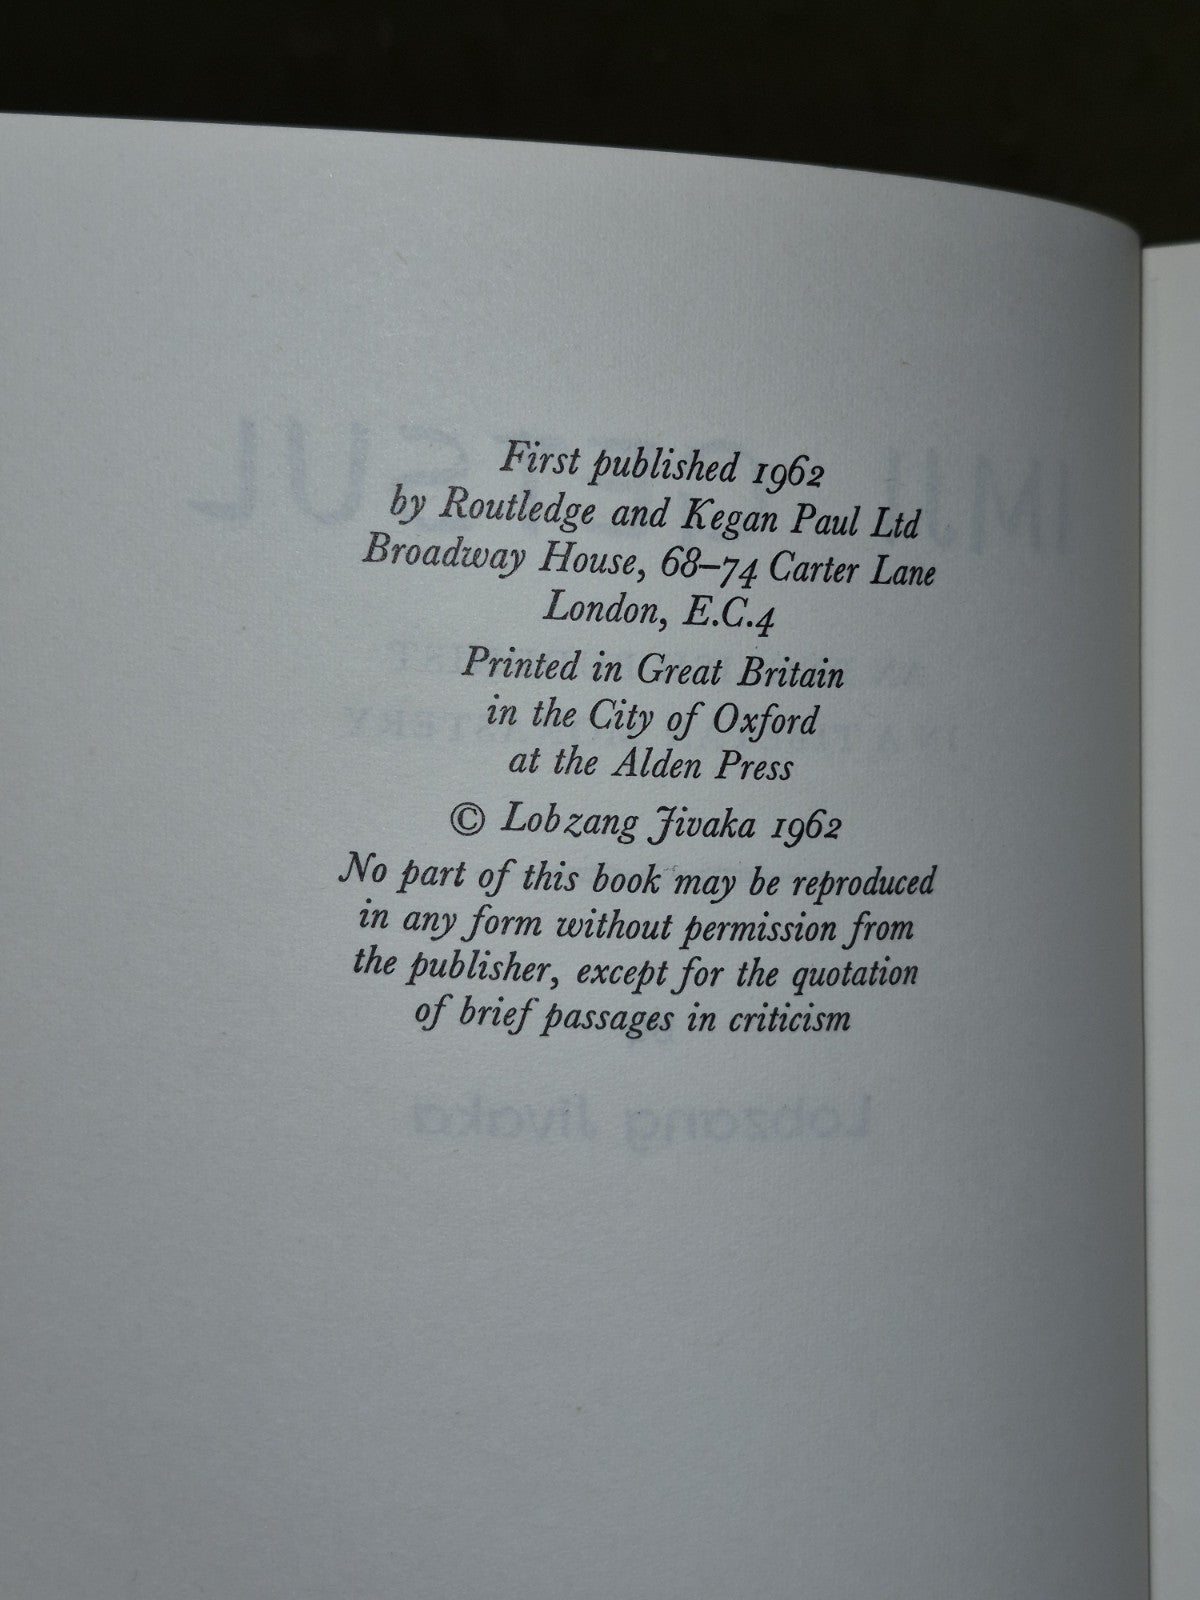 First published 1962
by Routledge and Kegan Paul Ltd
Broadway House, 68–74 Carter Lane
London, E.C.4
Printed in Great Britain
in the City of Oxford
at the Alden Press
© Lobzang Jivaka 1962
No part of this book may be reproduced
in any form without permission from
the publisher, except for the quotation
of brief passages in criticism
Lobzang Jivaka